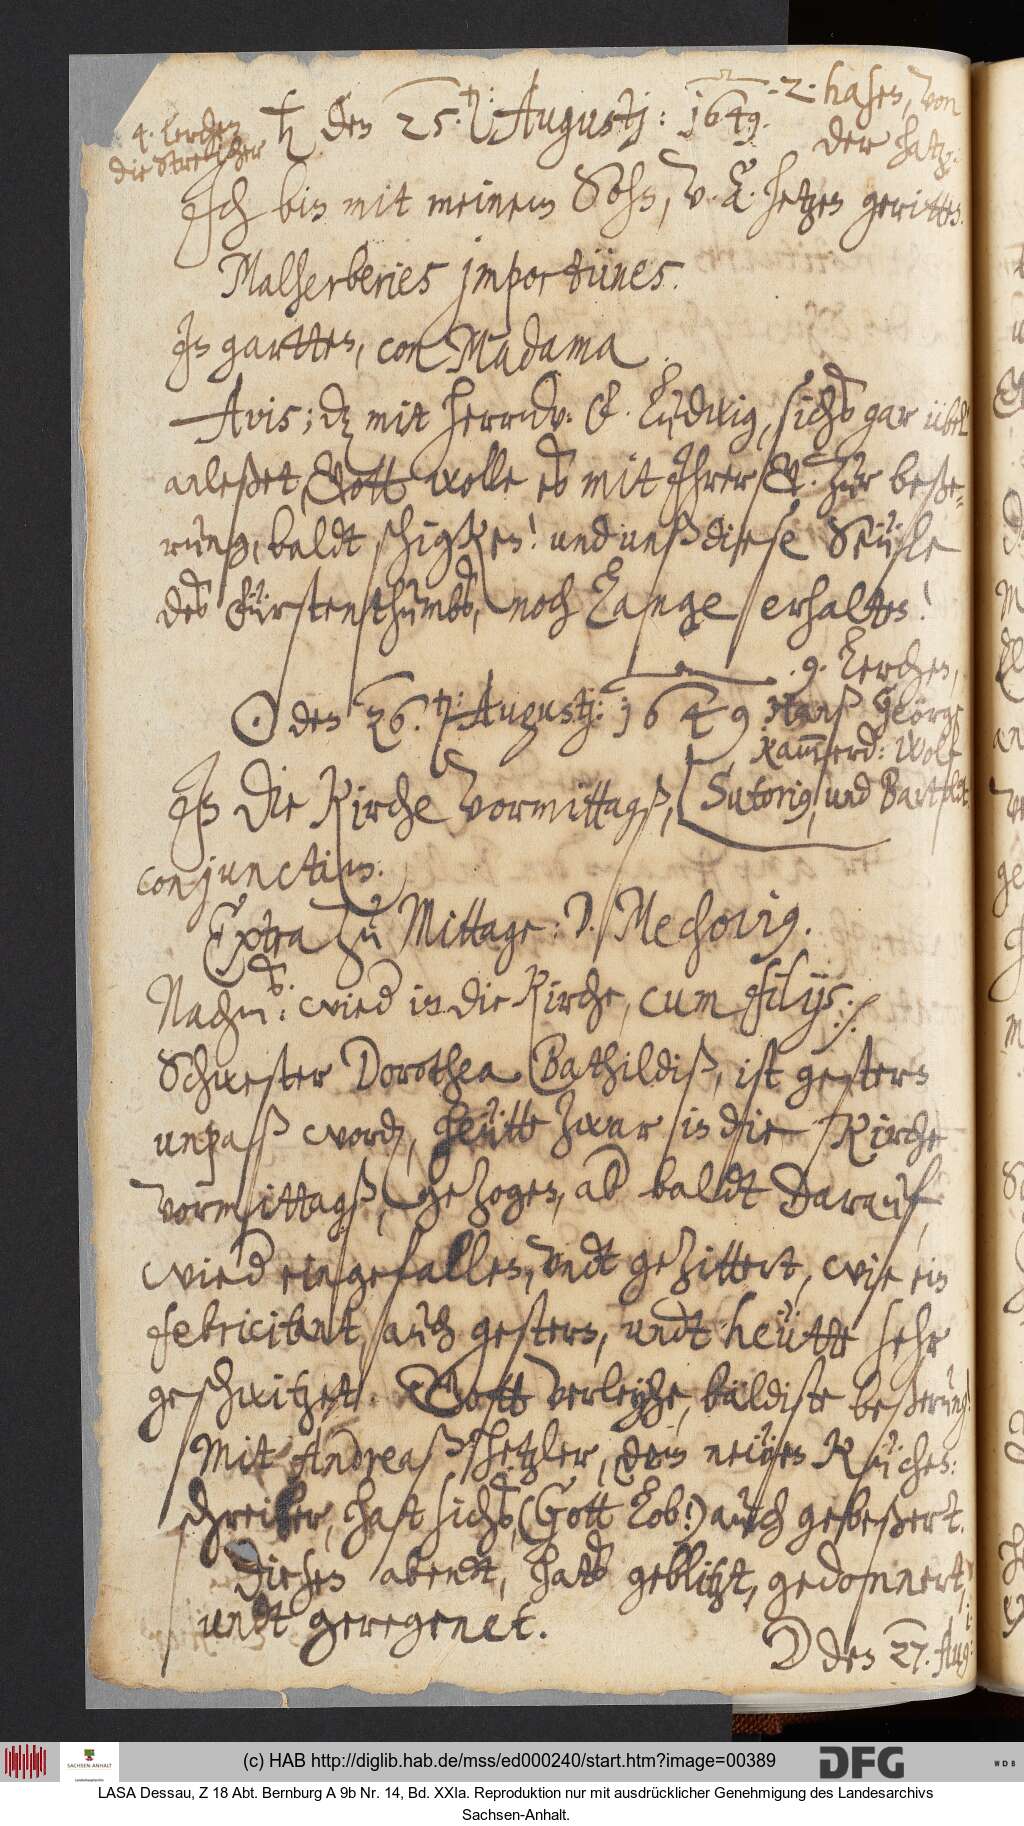 4. Lerchen
die Streicher
♄ den 25. Augustj: 1649.
2. hasen, von
der hatz.
Jch bin mit meinem Sohn, V. A. hetzen geritten.
Malherberies jmportünes.
Jn gartten, con Madama
Avis; dz mit Herrn v: F. Ludwig, sichs gar übel
anleßet, Gott wolle es mit Jhrer L. zur beße-
rung, baldt schigken! und unß diese Seüle
des Fürstenthumbs, noch Lange erhalten!
☉ den 26. Augustj: 1649
9. Lerchen,
Hanß Geörg
Kammerd: Wolf
Sutorius, und Bartholdt
Jn die Kirche vormittagß,
conjunctim.
Extra zu Mittage: D. Mechovius.
Nachm: wied in die Kirche, cum filijs. //
Schwester Dorothea Bathildiß, ist gestern
unpaß word, heütte zwar in die Kirche
vormittagß, gezogen, ab baldt darauf,
wied eingefallen, undt gezittert, wie ein
febricitant, auch gestern, undt heütte sehr
geschwitzet. Gott verleyhe, bäldiste beßerung!
Mit Andreaß Hetzler, dem neüen Küchen:
schreiber, hast sichs, (Gott Lob!) auch gebeßert.
Diesen abendt, hats geblitzt, gedonnert,
undt geregenet.
☽ den 27. Aug:
(c) HAB http://diglib.hab.de/mss/ed000240/start.htm?image=00389
SACHSEN-ANHALT
DFG
WDB
LASA Dessau, Z 18 Abt. Bernburg A 9b Nr. 14, Bd. XXIa. Reproduktion nur mit ausdrücklicher Genehmigung des Landesarchivs
Sachsen-Anhalt.